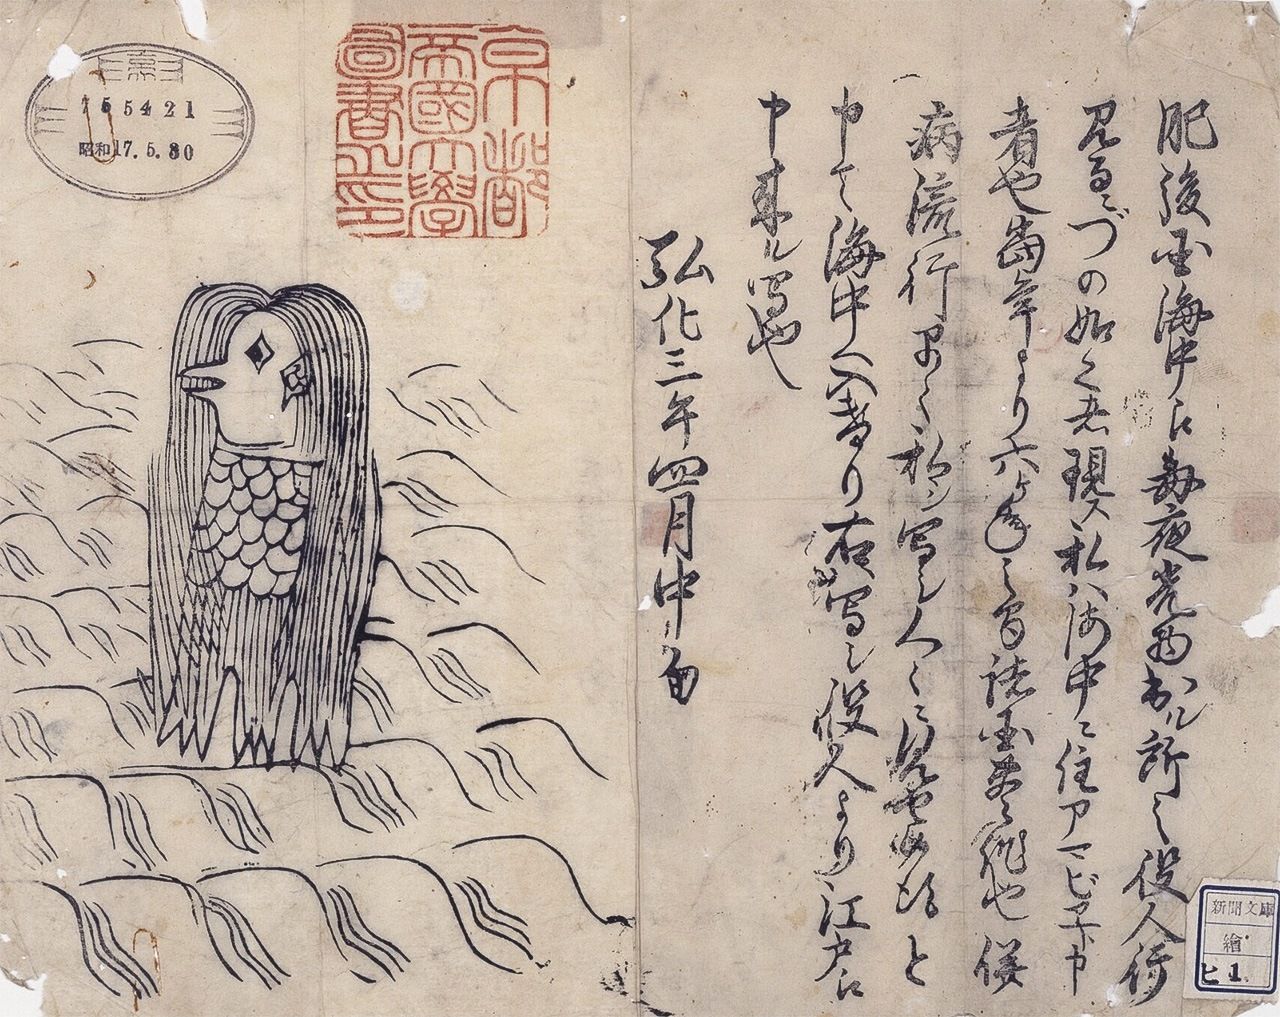 肥後国海中江毎夜光物出ル所之役人行
見るニづの如く者現ス私ハ海中ニ住アマビヱト申
者也当年より六ヶ年之間諸国豊作也併
病流行早々私ヲ写シ人々ニ見せ候得と
申て海中へ入けり右写シ役人より江戸江
申来ル写也
弘化三年四月中旬
京都
帝國大學
圖書之印
755421
昭和17.5.30
新聞文庫
繪
ヒ1